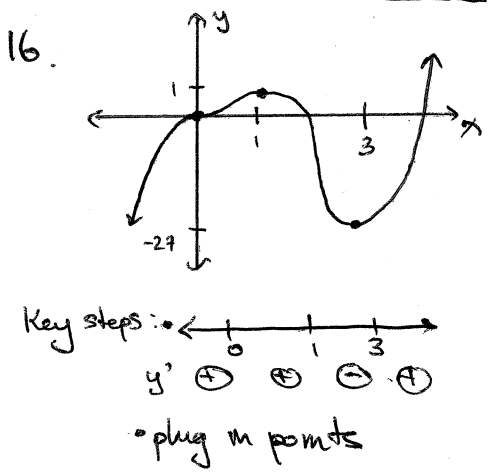 16.
y
1
x
1
3
-27
Key steps:•
0 1 3
y' + + - +
•plug in points